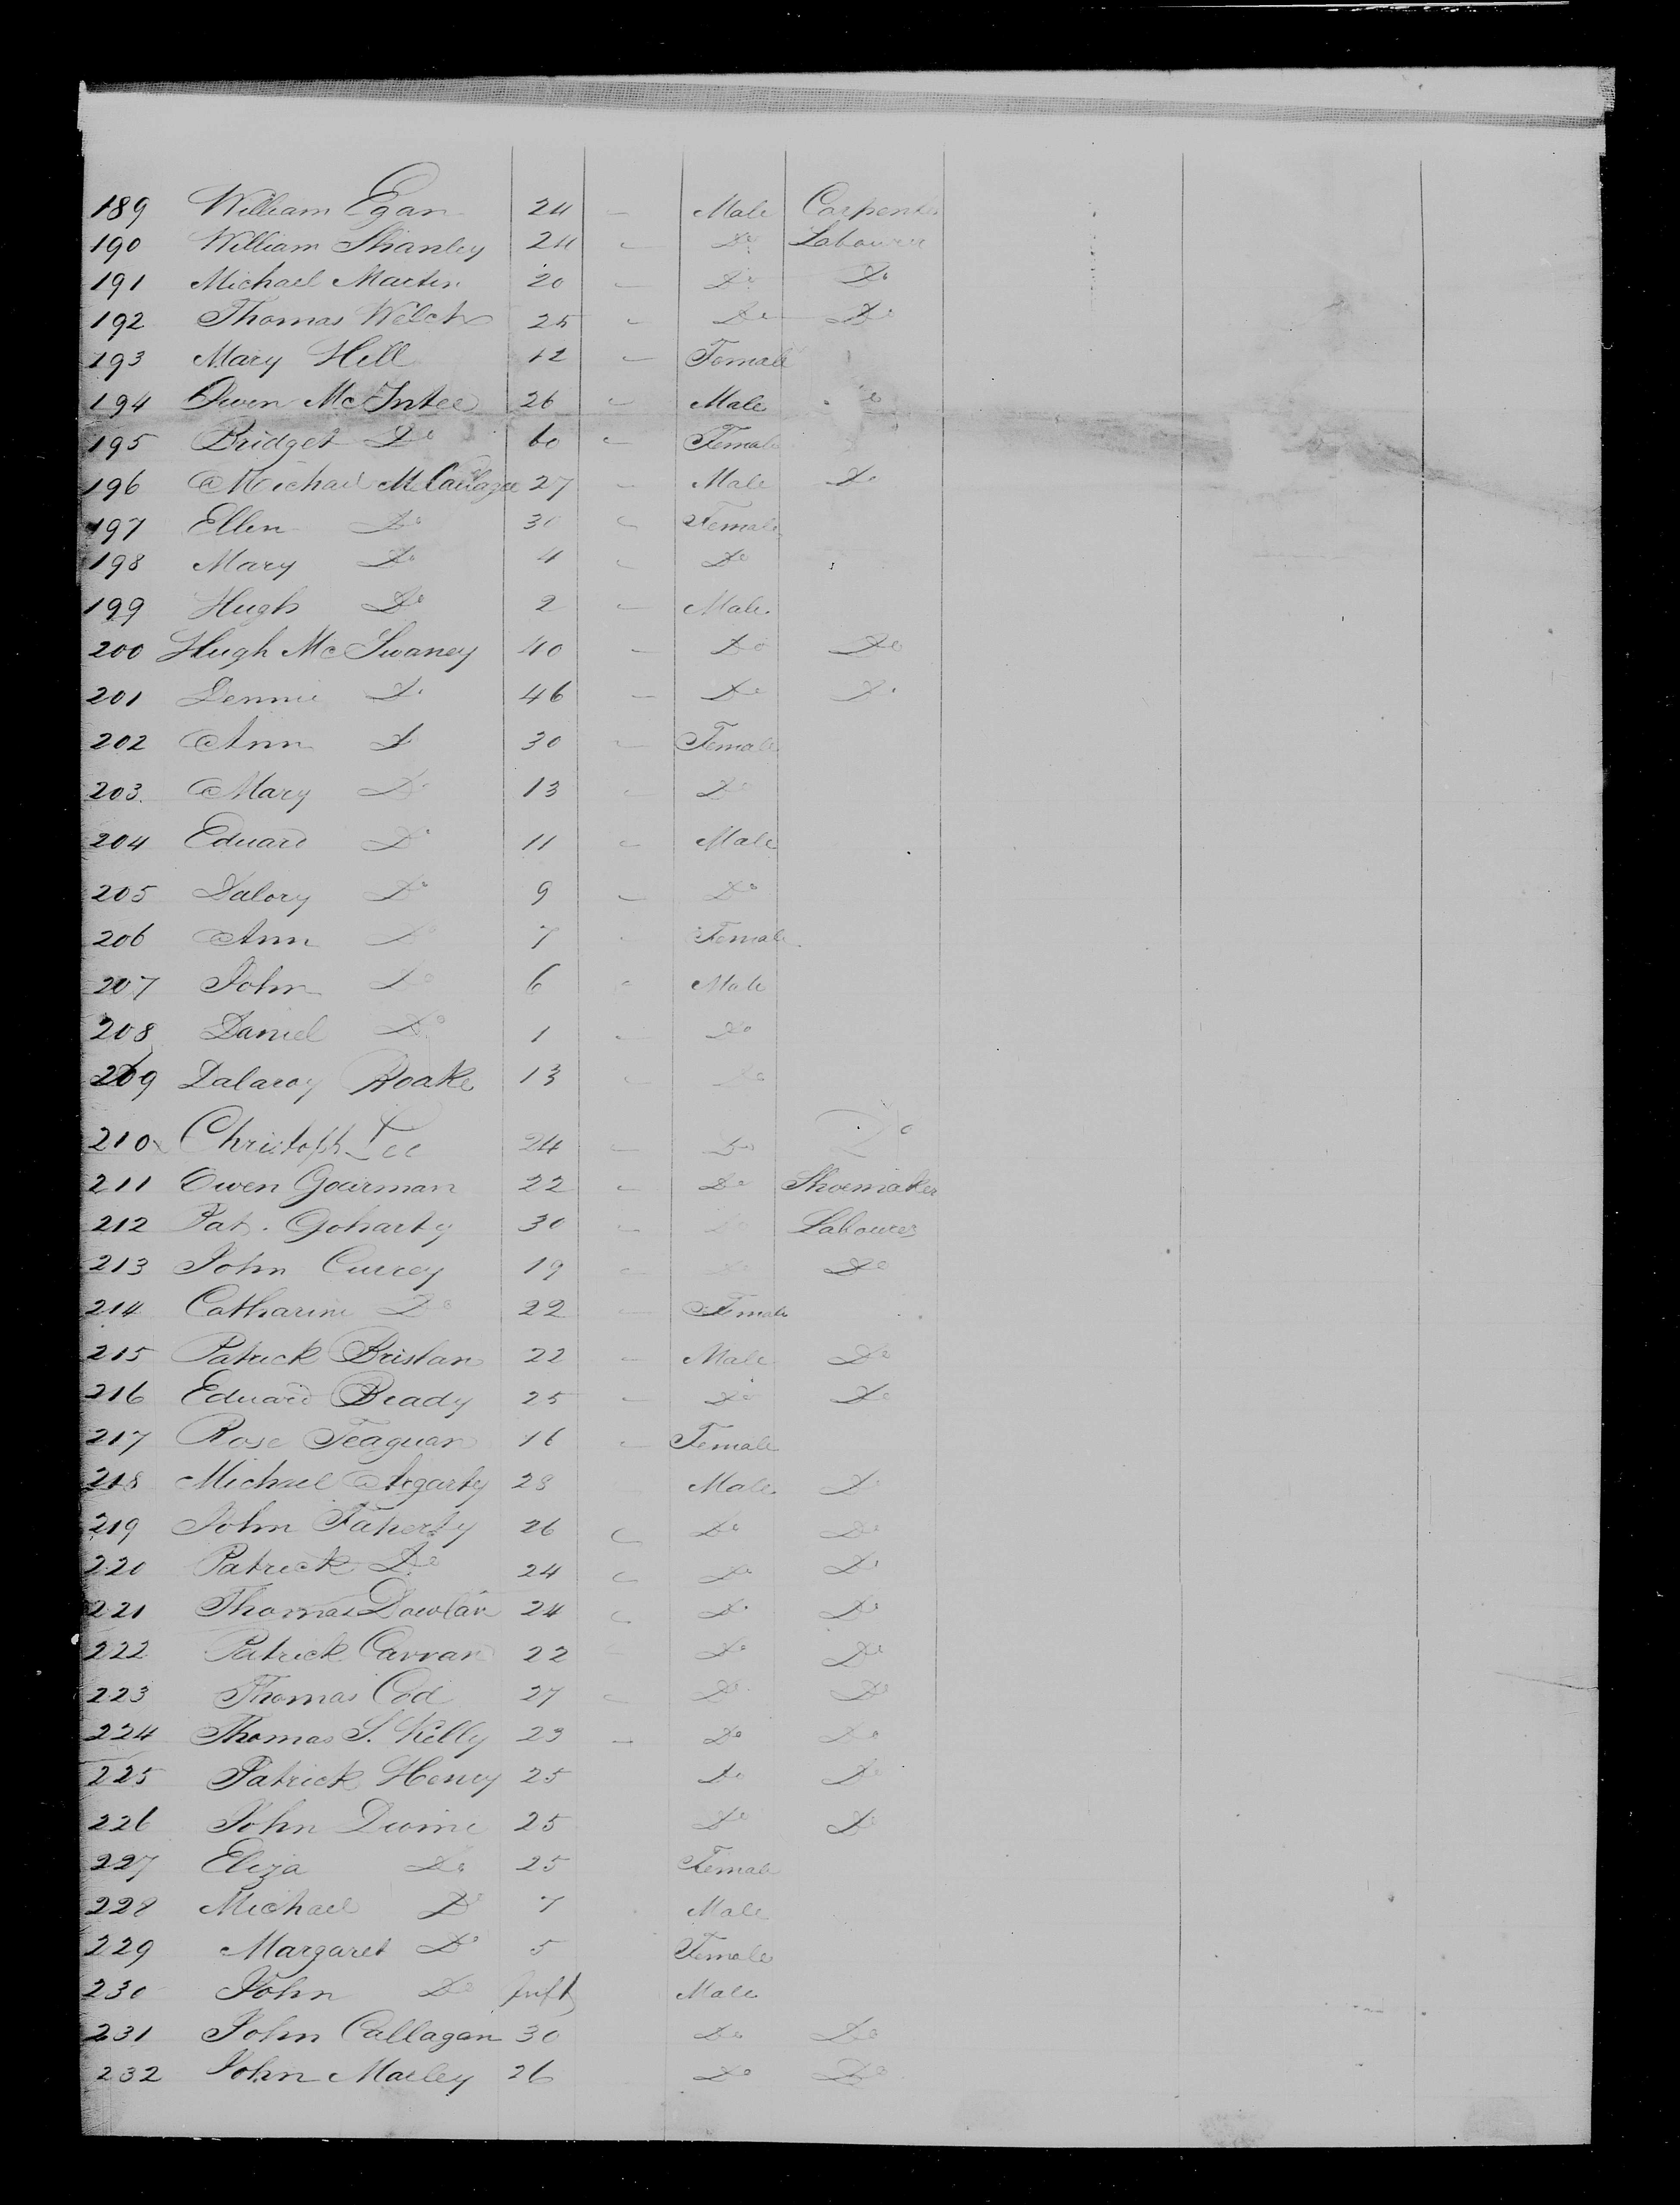 189 William Egan 24 Male Carpenter
190 William Shanley 24 Do Labourer
191 Michael Martin 20 Do Do
192 Thomas Welch 25 Do Do
193 Mary Hill 12 Female
194 Owen McIntee 26 Male Do
195 Bridget Do 60 Female
196 Michael 27 Male Do
197 Ellen Do 30 Female
198 Mary Do 4 Do
199 Hugh Do 2 Male
200 Hugh McSwaney 40 Do Do
201 Dennis Do 46 Do Do
202 Ann D 30 Female
203 Mary Do 13 Do
204 Eduard Do 11 Male
205 Dalory Do 9 Do
206 Ann Do 7 Female
207 John Do 6 Male
208 Daniel Do 1 Do
209 Dalaroy Roake 13 Do
210 Christoph Lee 24 Do Do
211 Owen Goarman 22 Do Shoemaker
212 Pat. Goharty 30 Do Labourer
213 John Currey 19 Do Do
214 Catharine Do 22 Female
215 Patrick Bristan 22 Male Do
216 Eduard Brady 25 Do Do
217 Rose Teaguan 16 Female
218 Michael Agarty 28 Male Do
219 John Faherty 26 Do Do
220 Patrick Do 24 Do Do
221 Thomas Dowlan 24 Do Do
222 Patrick Carran 22 Do Do
223 Thomas Cod 27 Do Do
224 Thomas S. Kelly 23 Do Do
225 Patrick Henry 25 Do Do
226 John Devine 25 Do Do
227 Eliza Do 25 Female
228 Michael Do 7 Male
229 Margaret Do 5 Female
230 John Do Inft Male
231 John Callagan 30 Do Do
232 John Marley 26 Do Do